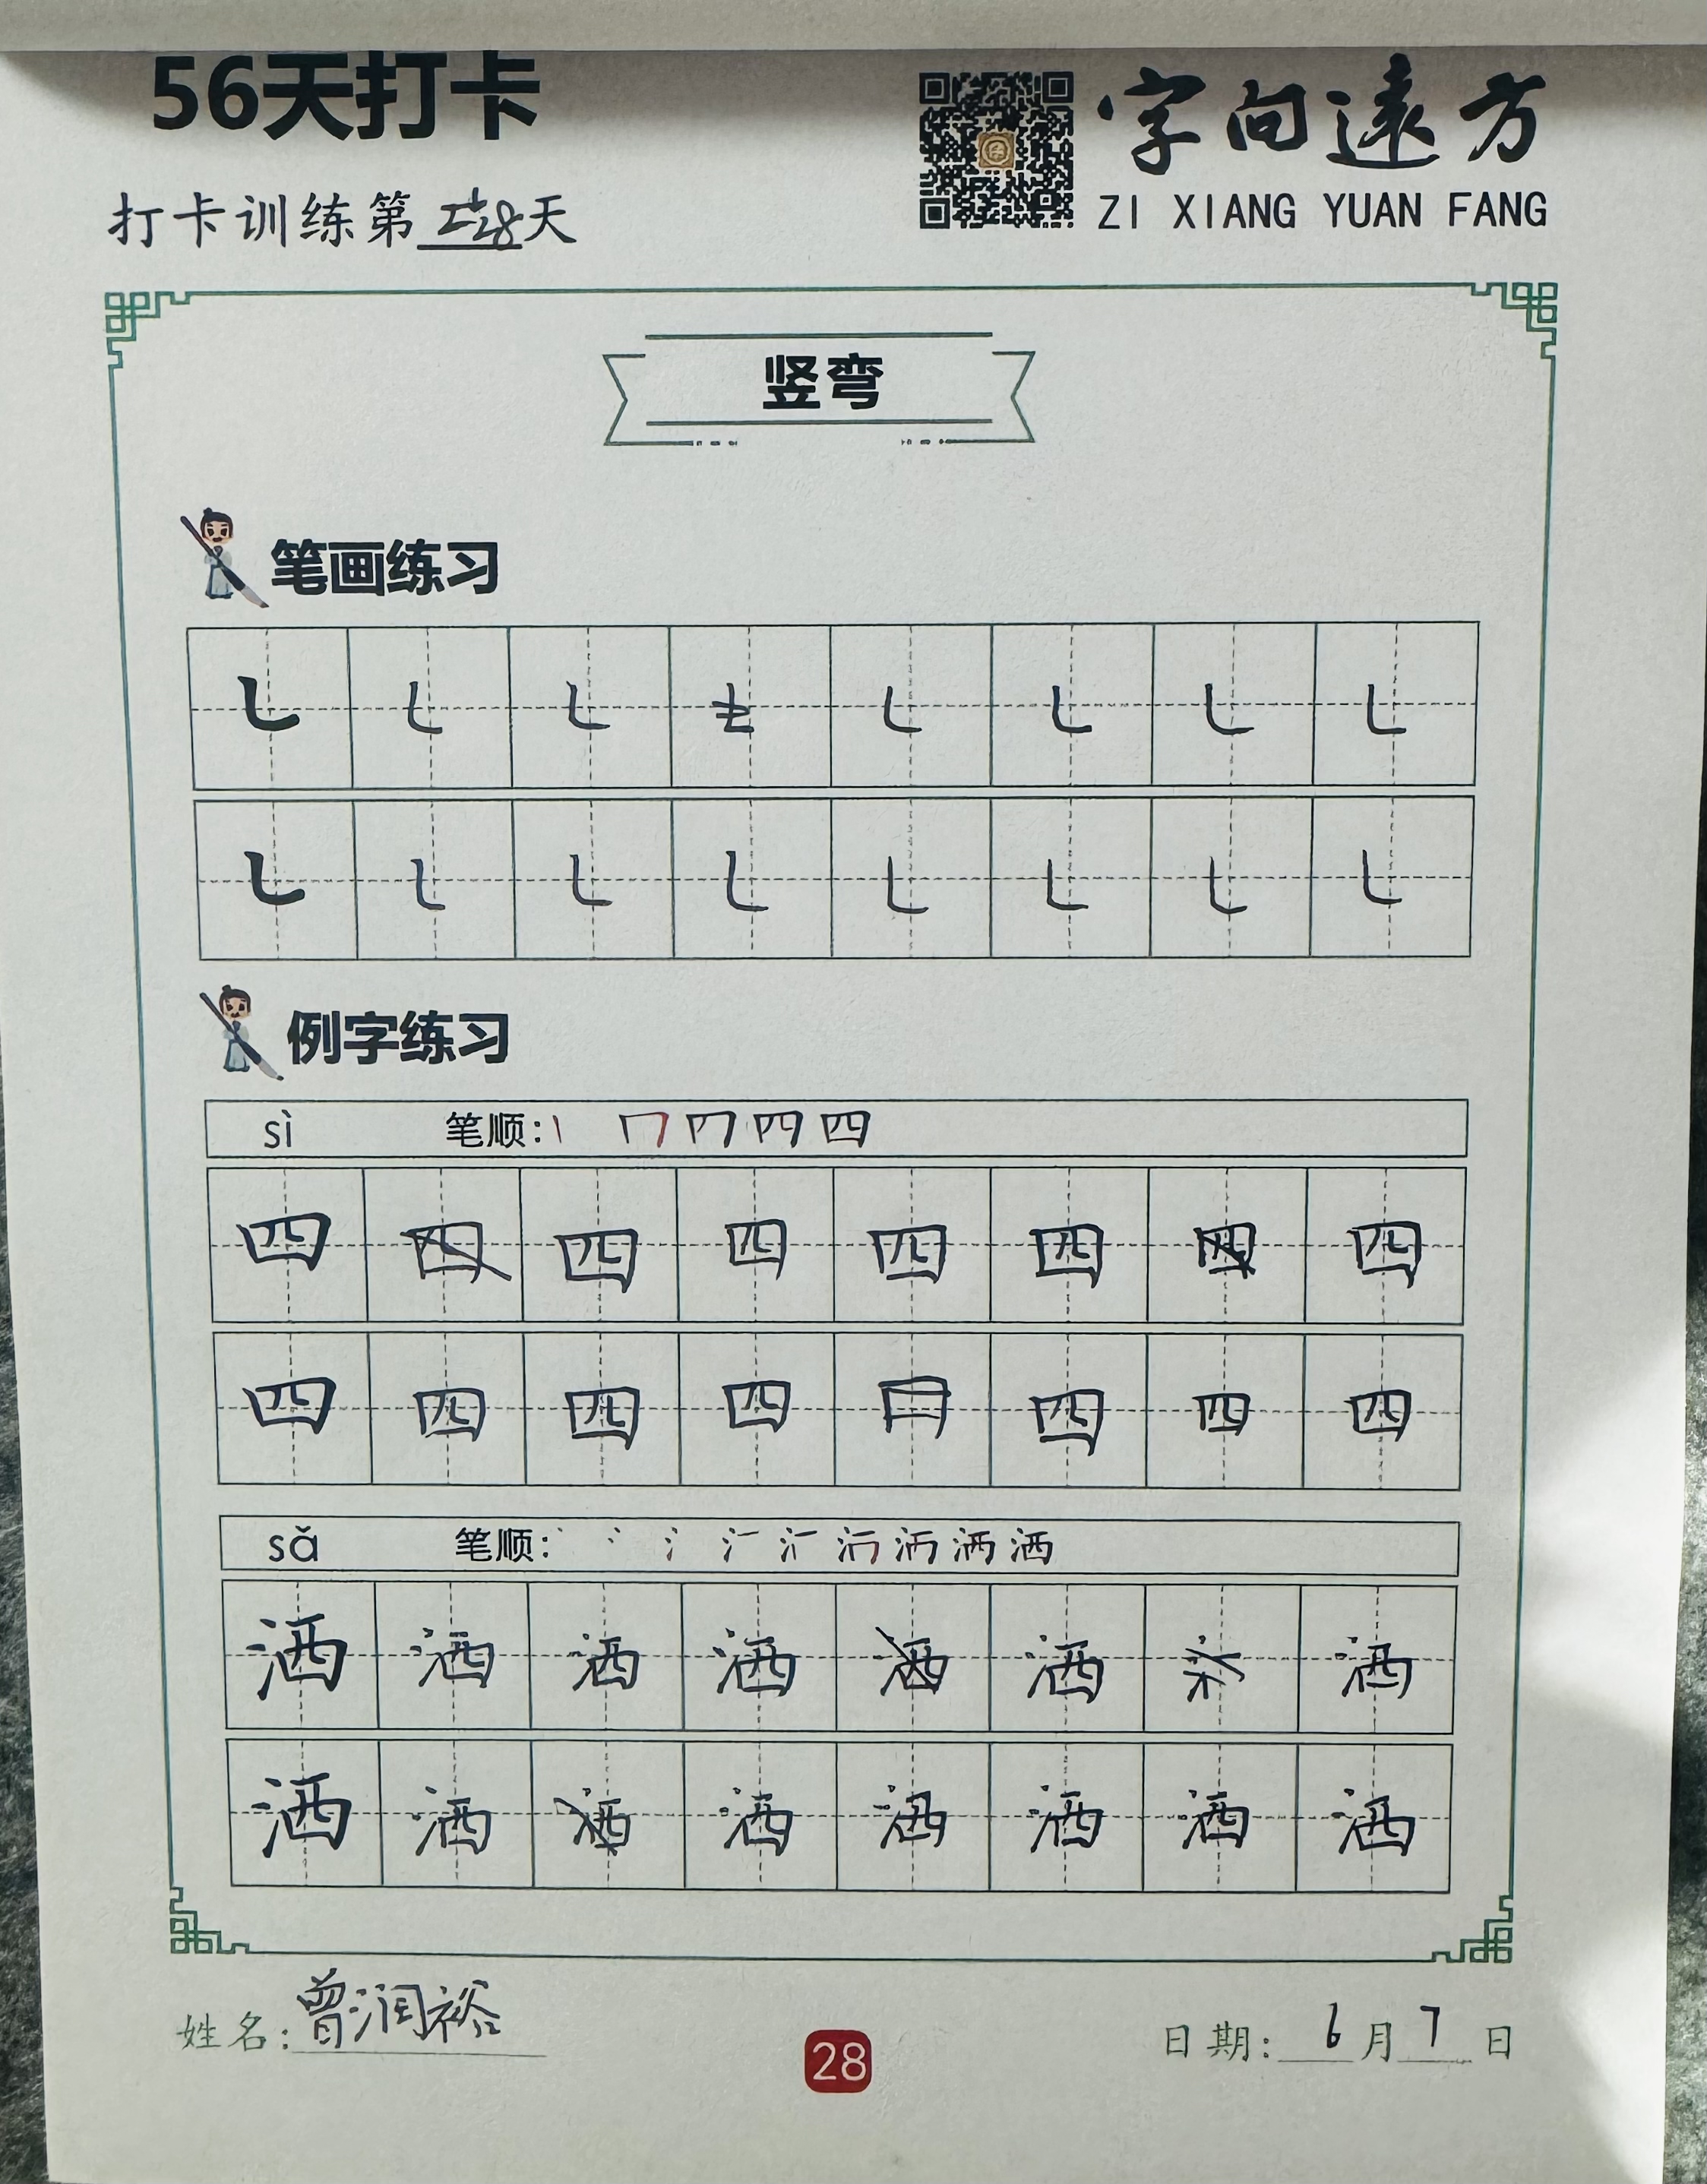 56天打卡
字向遠方
ZI XIANG YUAN FANG
打卡训练第28天
竖弯
笔画练习
例字练习
sì 笔顺:
四 四 四 四 四 四 四 四
四 四 四 四 四 四 四
sǎ 笔顺:
洒 洒 洒 洒 洒 洒 洒
洒 洒 洒 洒 洒 洒 洒 洒
姓名:曾润裕
28
日期: 6月7日